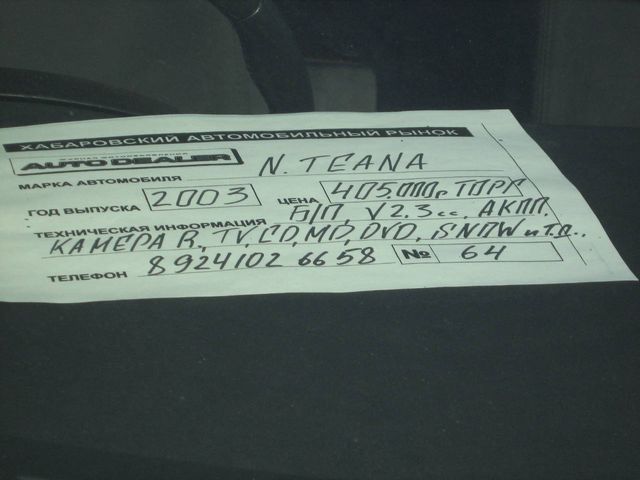 ХАБАРОВСКИЙ АВТОМОБИЛЬНЫЙ РЫНОК
AUTODEALER
МАРКА АВТОМОБИЛЯ N. TEANA
ГОД ВЫПУСКА 2003 ЦЕНА 405.000р ТОРГ
ТЕХНИЧЕСКАЯ ИНФОРМАЦИЯ Б/П, V2.3cc, АКПП.
КАМЕРА R, TV, CD, MD, DVD, SNOW и т.д..
ТЕЛЕФОН 8 924 102 66 58 № 64